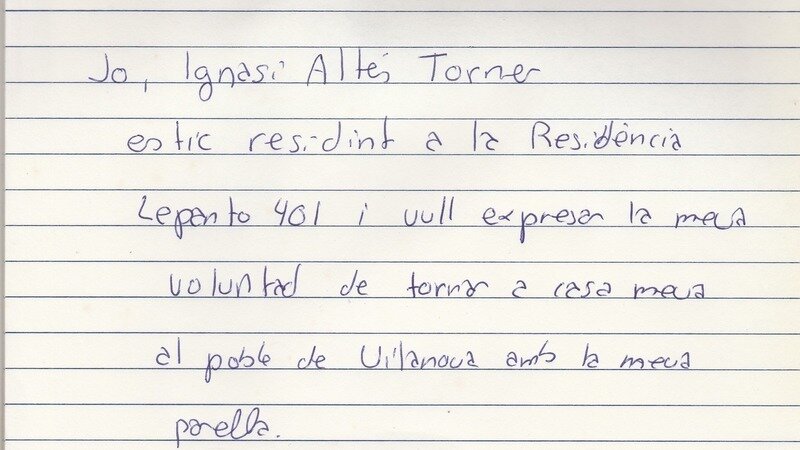 Jo, Ignasi Altés Torner
estic residint a la Residència
Lepanto 401 i vull expresar la meva
voluntad de tornar a casa meva
al poble de Vilanova amb la meva
parella.